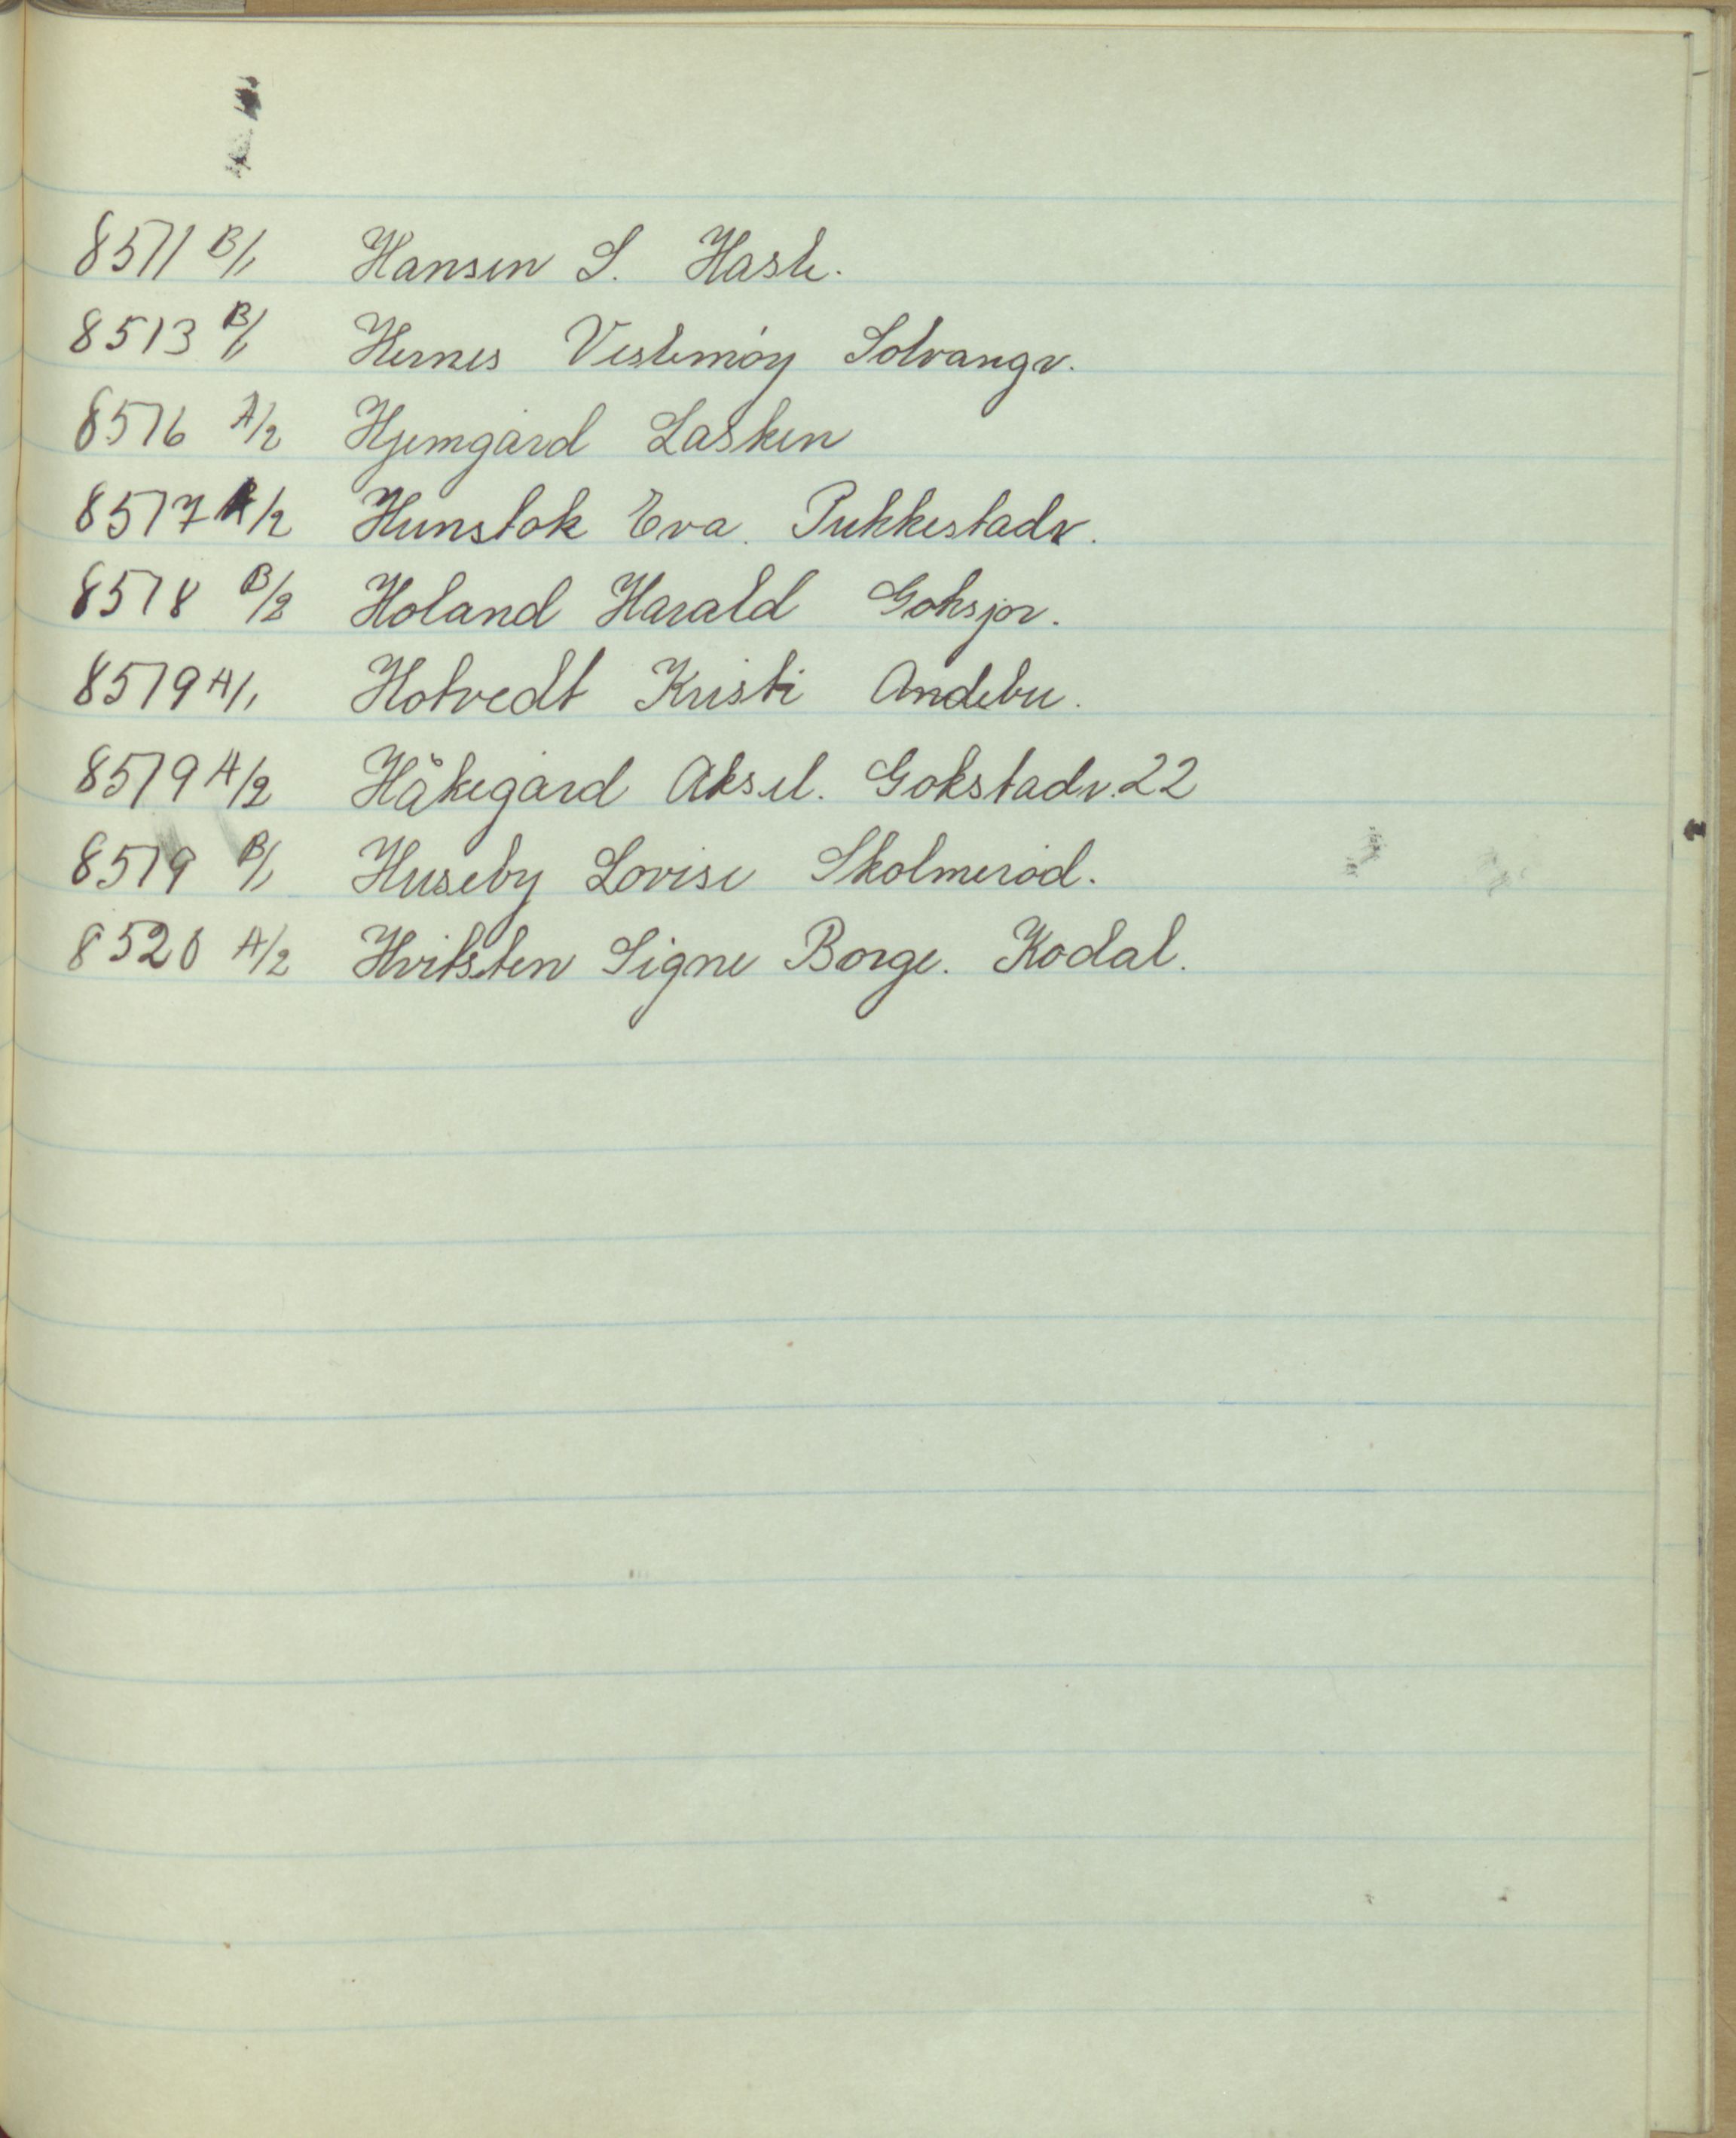 8511 B/1 Hansen S. Hasle.
8513 B/1 Hernes Vestemøy Solvangv.
8516 A/2 Hjemgård Lasken
8517 /2 Hunstok Eva. Pukkestadv.
8518 B/2 Holand Harald Goksjov.
8519 A/1 Hotvedt Kristi Andebu.
8519 A/2 Håkegård Aksel. Gokstadv. 22
8519 B/1 Huseby Lovise Skolmerød.
8520 A/2 Hvitsten Signe Borge. Kodal.